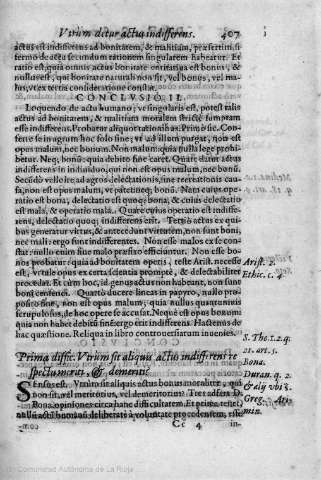 Vtrum detur actus indifferens. 407
actus est indifferens ad bonitatem, & malitiam, præsertim si
sermo de actu secundum rationem singularem habeatur. Et
ratio est, quia omnis actus bonitate entitatiua est bonus, &
nullus est, qui bonitate naturali non sit, vel bonus, vel ma-
lus, vt ex tertia consideratione constat.
CONCLVSIO II.
Loquendo de actu humano; vt singularis est, potest talis
actus ad bonitatem, & malitiam moralem stricte sumptam
esse indifferens. Probatur aliquot rationibus. Prima sit: Con-
ferre se in agrum hoc solo fine, vt ad illum pergat, non est
opus malum, nec bonum. Non malum: quia nulla lege prohi-
betur. Neq; bonū: quia debito fine caret. Quare datur actus
indifferens in indiuiduo, qui non est opus malum, nec bonū.
Secūdo velle ire ad agros, delectationis, siue recreationis cau-
sa, non est opus malum, vt patet: neq; bonū. Nam cuius ope-
ratio est bona, delectatio est quoq; bona, & cuius delectatio
est mala, & operatio mala. Quare cuius operatio est indiffe-
rens, delectatio quoq; indifferens erit. Tertio actus ex qui-
bus generatur virtus, & antecedunt virtutem, non sunt boni,
nec mali: ergo sunt indifferentes. Non esse malos ex se con-
stat: nullo enim fine malo præfixo efficiuntur. Non esse bo-
nos probatur: quia ad bonitatem operis, teste Arist. necesse
est, vt tale opus ex certa scientia prompte, & delectabiliter
procedat. Et cum hoc, id genus actus non habeant, non sunt
boni censendi. Quarto ducere lineas in papyro, nullo pro-
posito fine, non est opus malum, quia nullus quantumuis
scrupulosus, de hoc opere se accusat. Neque est opus bonum:
quia non habet debitū finē: ergo erit indifferens. Hactenus de
hac quæstione. Reliqua in libro controuersiarum inuenies.
Arist. 2.
Ethic. c. 4
Prima diffic. Vtrum sit aliquis actus indifferens re
spectu meriti, & demeriti.
S. Tho. 1. 2. q.
21. art. 5.
Bona.
Duran. q. 2.
& alij vbi ..
Greg. Ari-
min.
SEnsus est. Vtrum sit aliquis actus bonus moraliter, qui
non sit, vel meritorius, vel demeritorius? Tres adsert D.
Bona. opiniones circa hanc difficultatem. Et prima tenet,
nullū actū humanū deliberatū à voluntate procedentem, esse
Cc 4 in-
Comunidad Autónoma de La Rioja